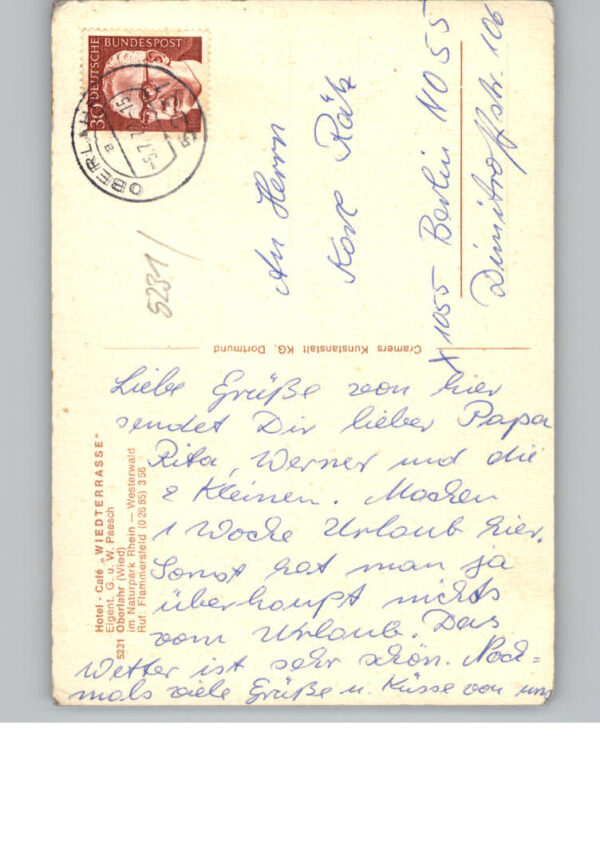 30
DEUTSCHE
BUNDESPOST
OBERLAHR
a
5231/
An Herrn
Rätz
X 1055 Berlin NO 55
Dimitroffstr. 106
Cramers Kunstanstalt KG, Dortmund
Hotel - Café „WIEDTERRASSE"
Eigent. G. u. W. Paesch
5231 Oberlahr (Wied)
im Naturpark Rhein — Westerwald
Ruf: Flammersfeld (0 26 85) 3 56
Liebe Grüße von hier
sendet Dir lieber Papa
Rita, Werner und die
2 Kleinen. Machen
1 Woche Urlaub hier.
Sonst hat man ja
überhaupt nichts
vom Urlaub. Das
Wetter ist sehr schön. Noch=
mals viele Grüße u. Küsse von uns